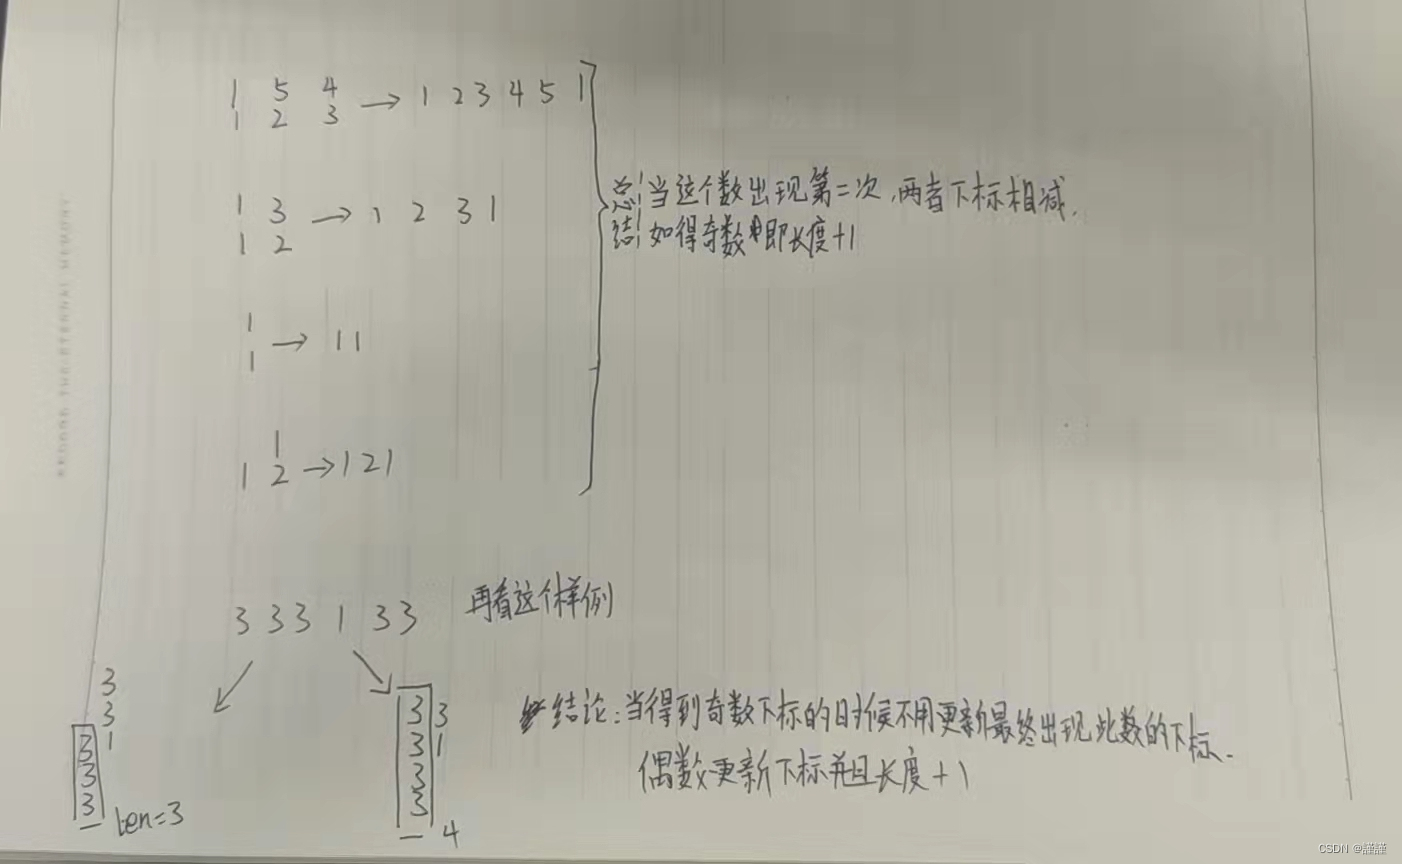 1 5 4
1 2 3 → 1 2 3 4 5 1
1 3
1 2 → 1 2 3 1
1
1 → 1 1
1
1 2 → 1 2 1
总结! 当这个数出现第二次,两者下标相减.
如得奇数即长度+1
3 3 3 1 3 3 再看这个样例
3
3
3 1
3
3
len=3
3 3
3 1
3
3
4
结论:当得到奇数下标的时候不用更新最终出现此数的下标.
偶数更新下标并且长度+1
CSDN @謹謹